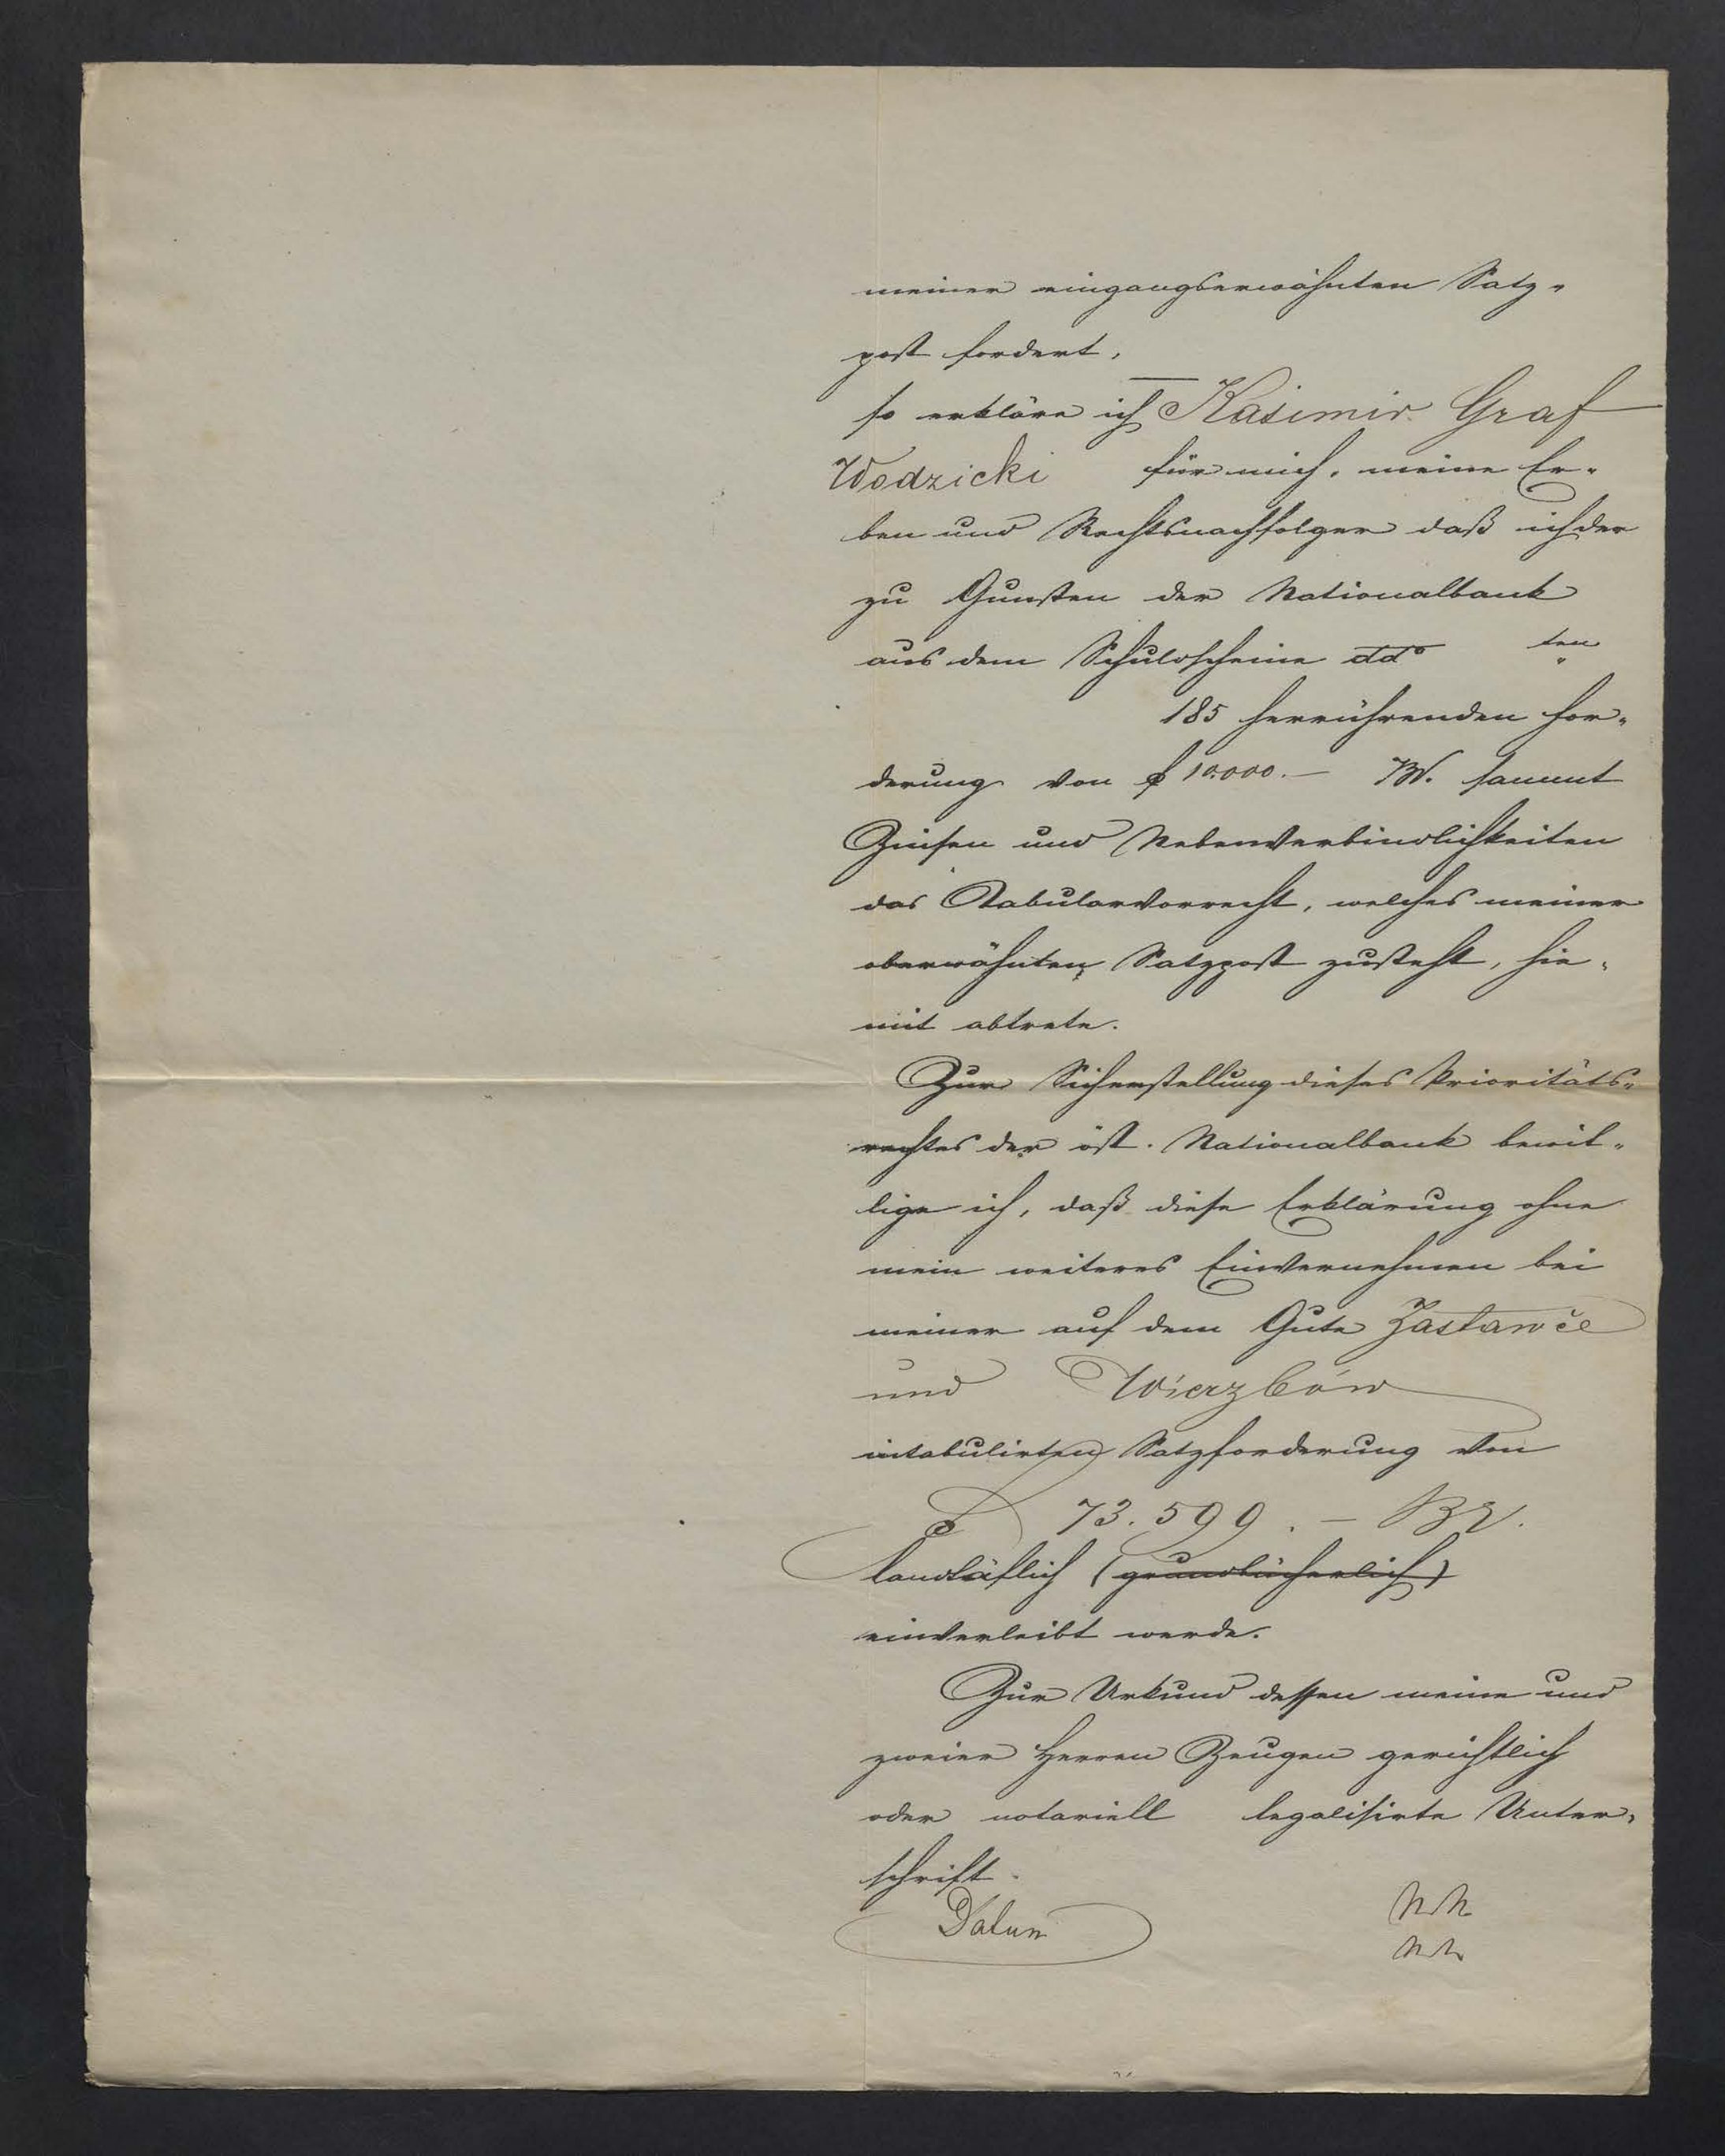 meiner eingangserwähnten Satz-
post fordert,
so erkläre ich Kasimir Graf
Wodzicki für mich, meine Er-
ben und Rechtsnachfolger daß ich der
zu Gunsten der Nationalbank
aus dem Schuldscheine ddo ten
185 herrührenden For-
derung von f 10.000.— W. sammt
Zinsen und Nebenverbindlichkeiten
das Tabularvorrecht, welches meiner
oberwähnten Satzpost zusteht, hie-
mit abtrete.
Zur Sicherstellung dieses Prioritäts-
rechtes der öst. Nationalbank bewil-
lige ich, daß diese Erklärung ohne
mein weiteres Einvernehmen bei
meiner auf dem Gute Zastawče
und Wierzbów
intabulirten Satzforderung von
f 73.599.—
landtäflich (grundbücherlich)
einverleibt werde.
Zur Urkund dessen meine und
zweier Herren Zeugen gerichtlich
oder notariell legalisirte Unter-
schrift.
Datum N.N.
N.N.